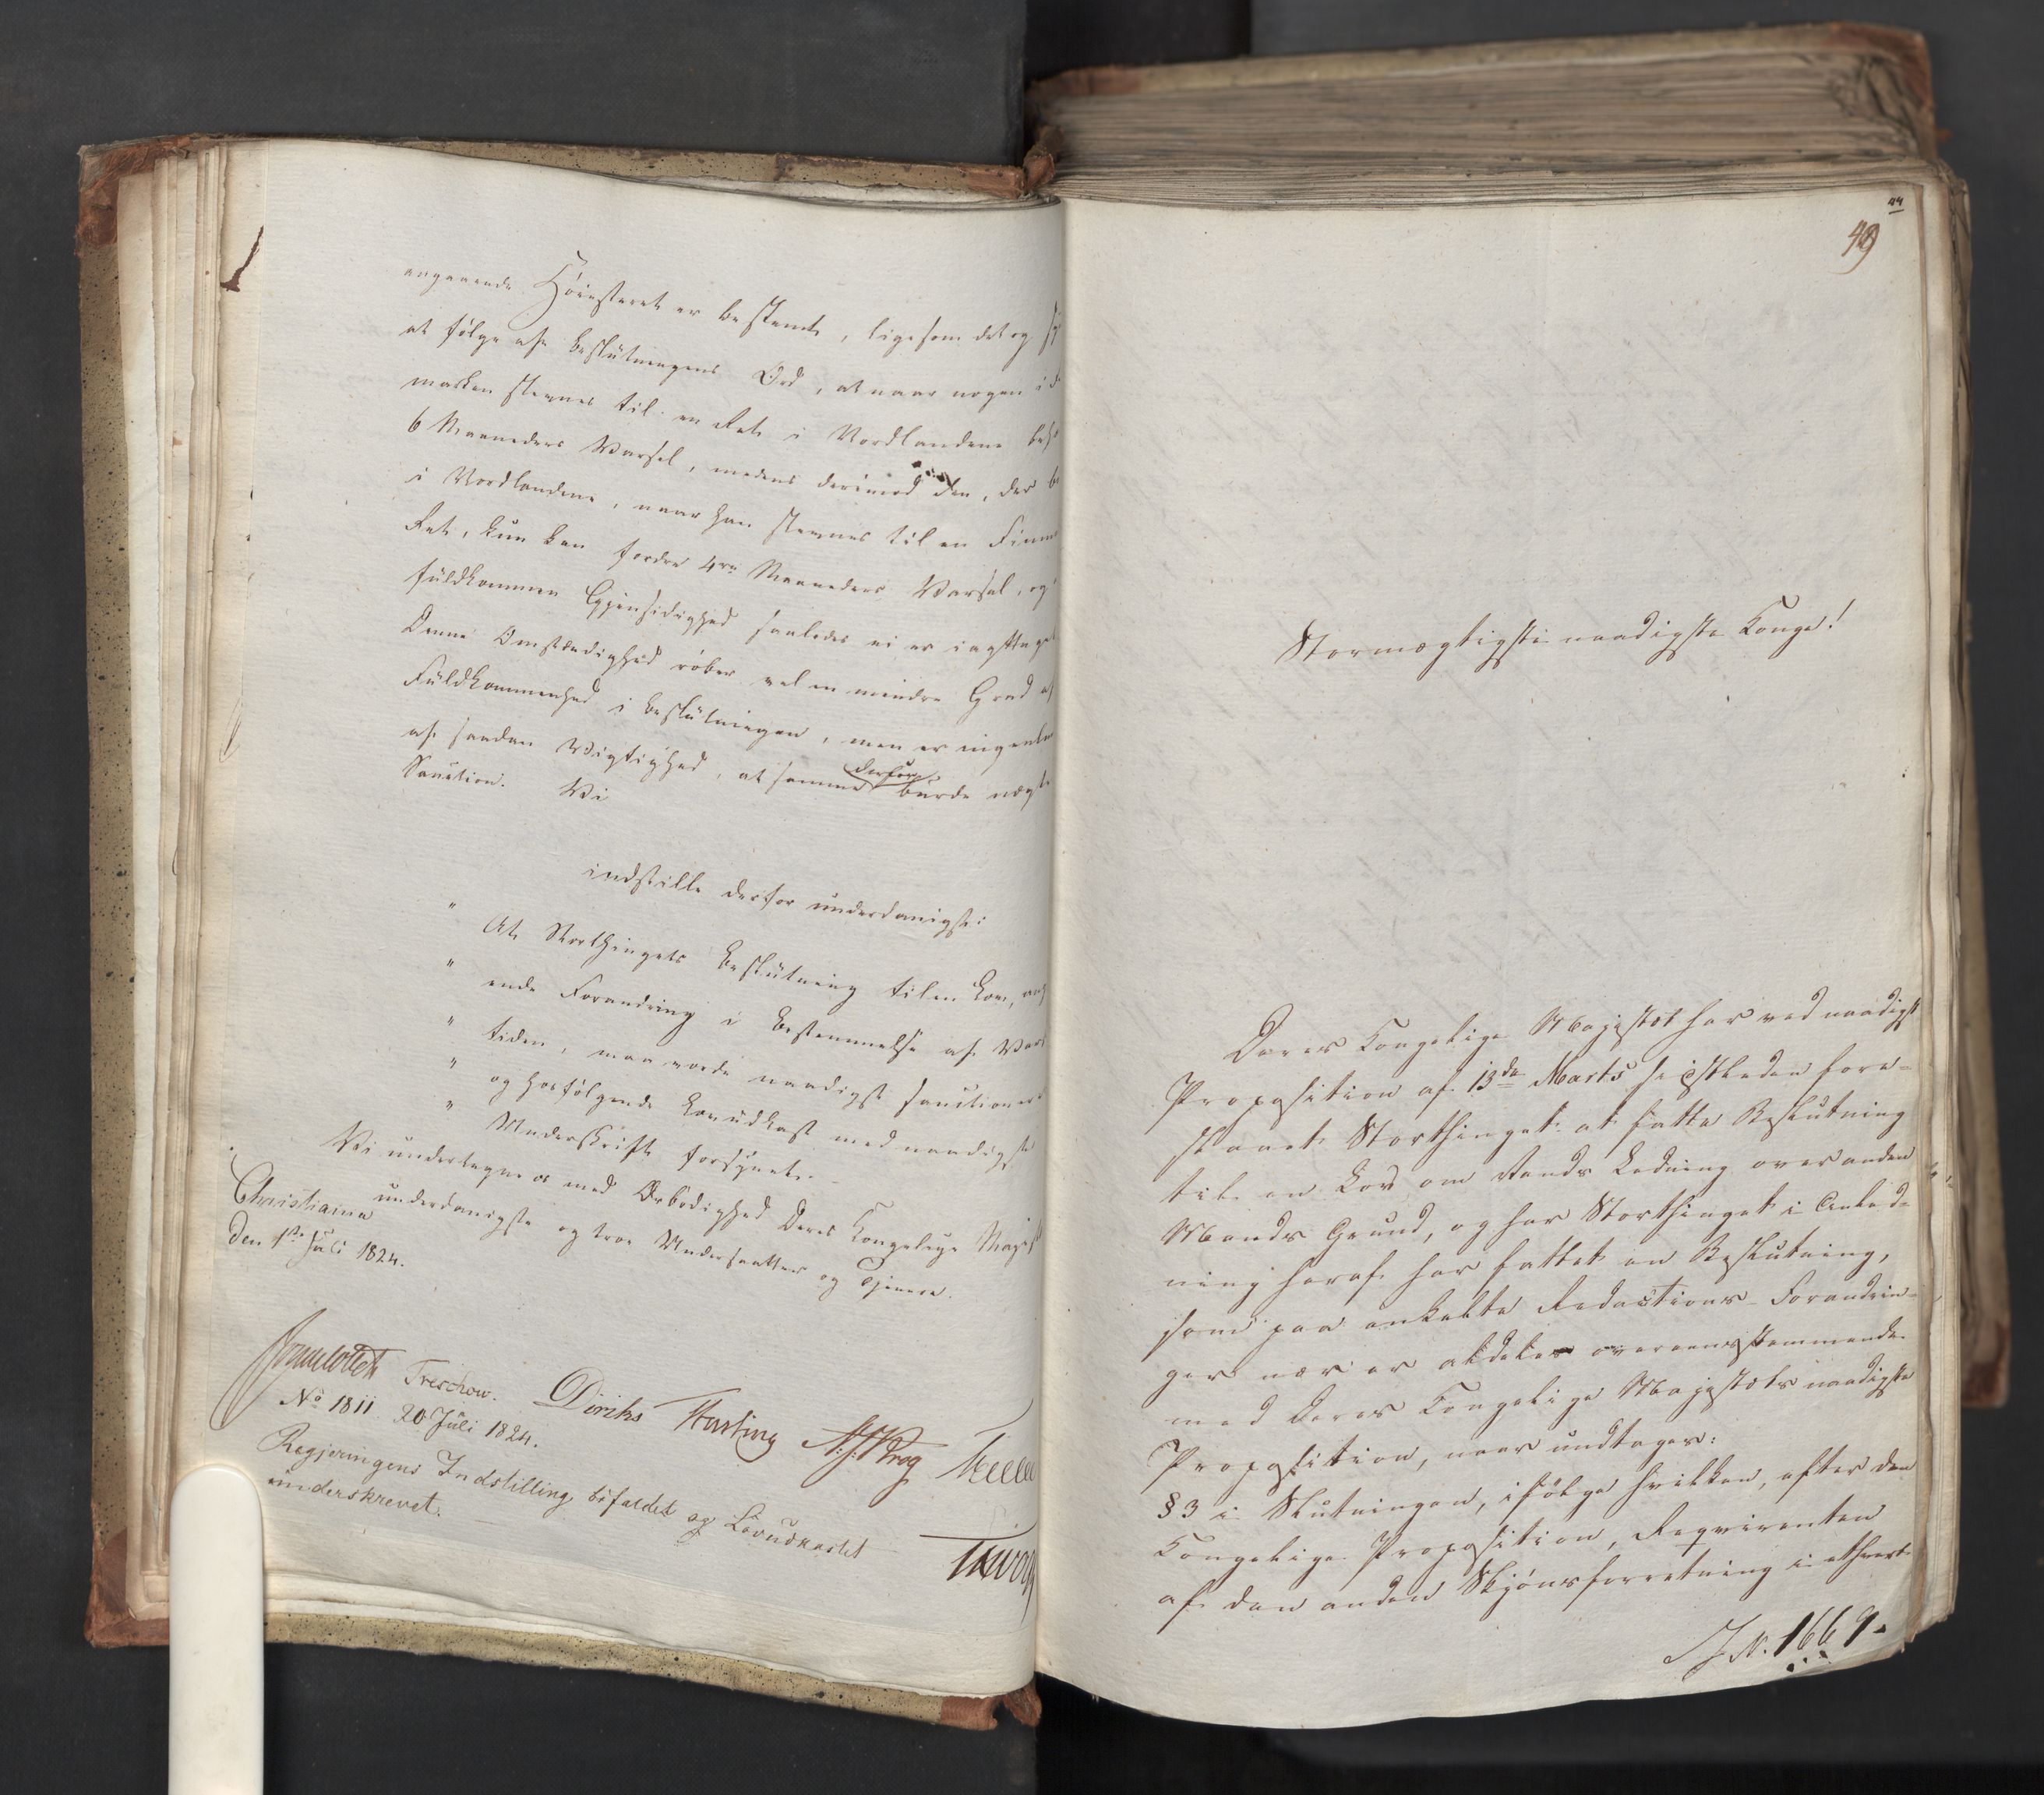 angaaende Höiesteret er bestemt, ligesom det og
at følge af Beslutningens Ord, at naar nogen i
marken stevnes til en Ret i Nordlandene
6 Maaneders Varsel, medens derimod den, der
i Nordlandene, naar han stevnes til en Finm
Ret, kun kan fordre 4re Maaneders Varsel, og
fuldkommen Gjensidighed saaledes ei er iagttaget
Denne Omstændighed røber vel en mindre Grad af
Fuldkommenhed i Beslutningen, men er ingenlu
af saadan Vigtighed, at samme derfor burde nægte
Sanction. Vi
indstille derfor underdanigst:
" At Storthingets Beslutning til en Lov, ang
" ende Forandring i Bestemmelse af Vars
" tiden, maa vorde naadigst sanctioneret
" og hosfølgende Lovudkast med naadigste
" Underskrift forsynet.
Vi undertegne os med Ærbødighed Deres Kongelige Majest
underdanigste og troe Undersaatter og Tjenere.
Christiania
den 1ste Juli 1824.
Treschow. Diriks
No 1811 20 Juli 1824.
Regjeringens Indstilling bifaldet og Lovudkastet
underskrevet.
44
49
Stormægtigste naadigste Konge!
Deres Kongelige Majestæt har ved naadigst
Proposition af 13de Marts sidstleden fore-
slaaet Storthinget at fatte Beslutning
til en Lov om Vands Ledning over anden
Mands Grund, og har Storthinget i Anled-
ning heraf har fattet en Beslutning,
som paa enkelte Redactions-Forandrin-
ger nær er aldeles overeensstemmende
med Deres Kongelige Majestæts naadigste
Proposition, naar undtages:
§3 i Slutningen, ifølge hvilken, efter den
Kongelige Proposition, Reqvirenten
af den anden Skjønsforretning i ethvert
J.N. 1669.